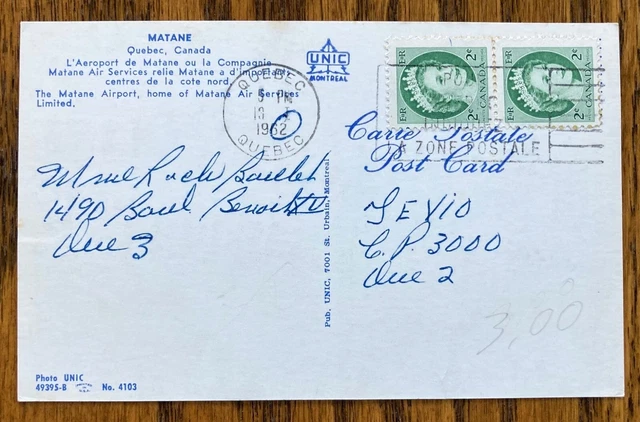 MATANE
Quebec, Canada
L'Aeroport de Matane ou la Compagnie
Matane Air Services relie Matane a d'importants
centres de la cote nord.
The Matane Airport, home of Matane Air Services
Limited.
UNIC
MONTREAL
QUEBEC
PM
1962
QUEBEC
E·R
2¢
CANADA
2¢
E·R
2¢
CANADA
2¢
A ZONE POSTALE
Carte Postale
Post Card
Mme
1490 Boul. Benoit XV
Que 3
Pub. UNIC, 7001 St. Urbain, Montreal
C.P. 3000
Que 2
3,00
Photo UNIC
49395-B No. 4103